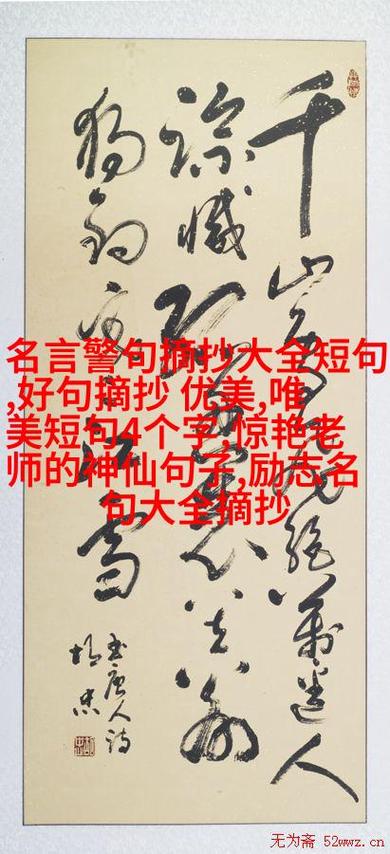 千山鳥飛絕萬逕人
踪滅孤舟蓑笠翁
獨釣寒江雪
书唐人诗
名言警句摘抄大全短句
,好句摘抄 优美,唯
美短句4个字,惊艳老
师的神仙句子,励志名
句大全摘抄
无为斋 52wwz.cn